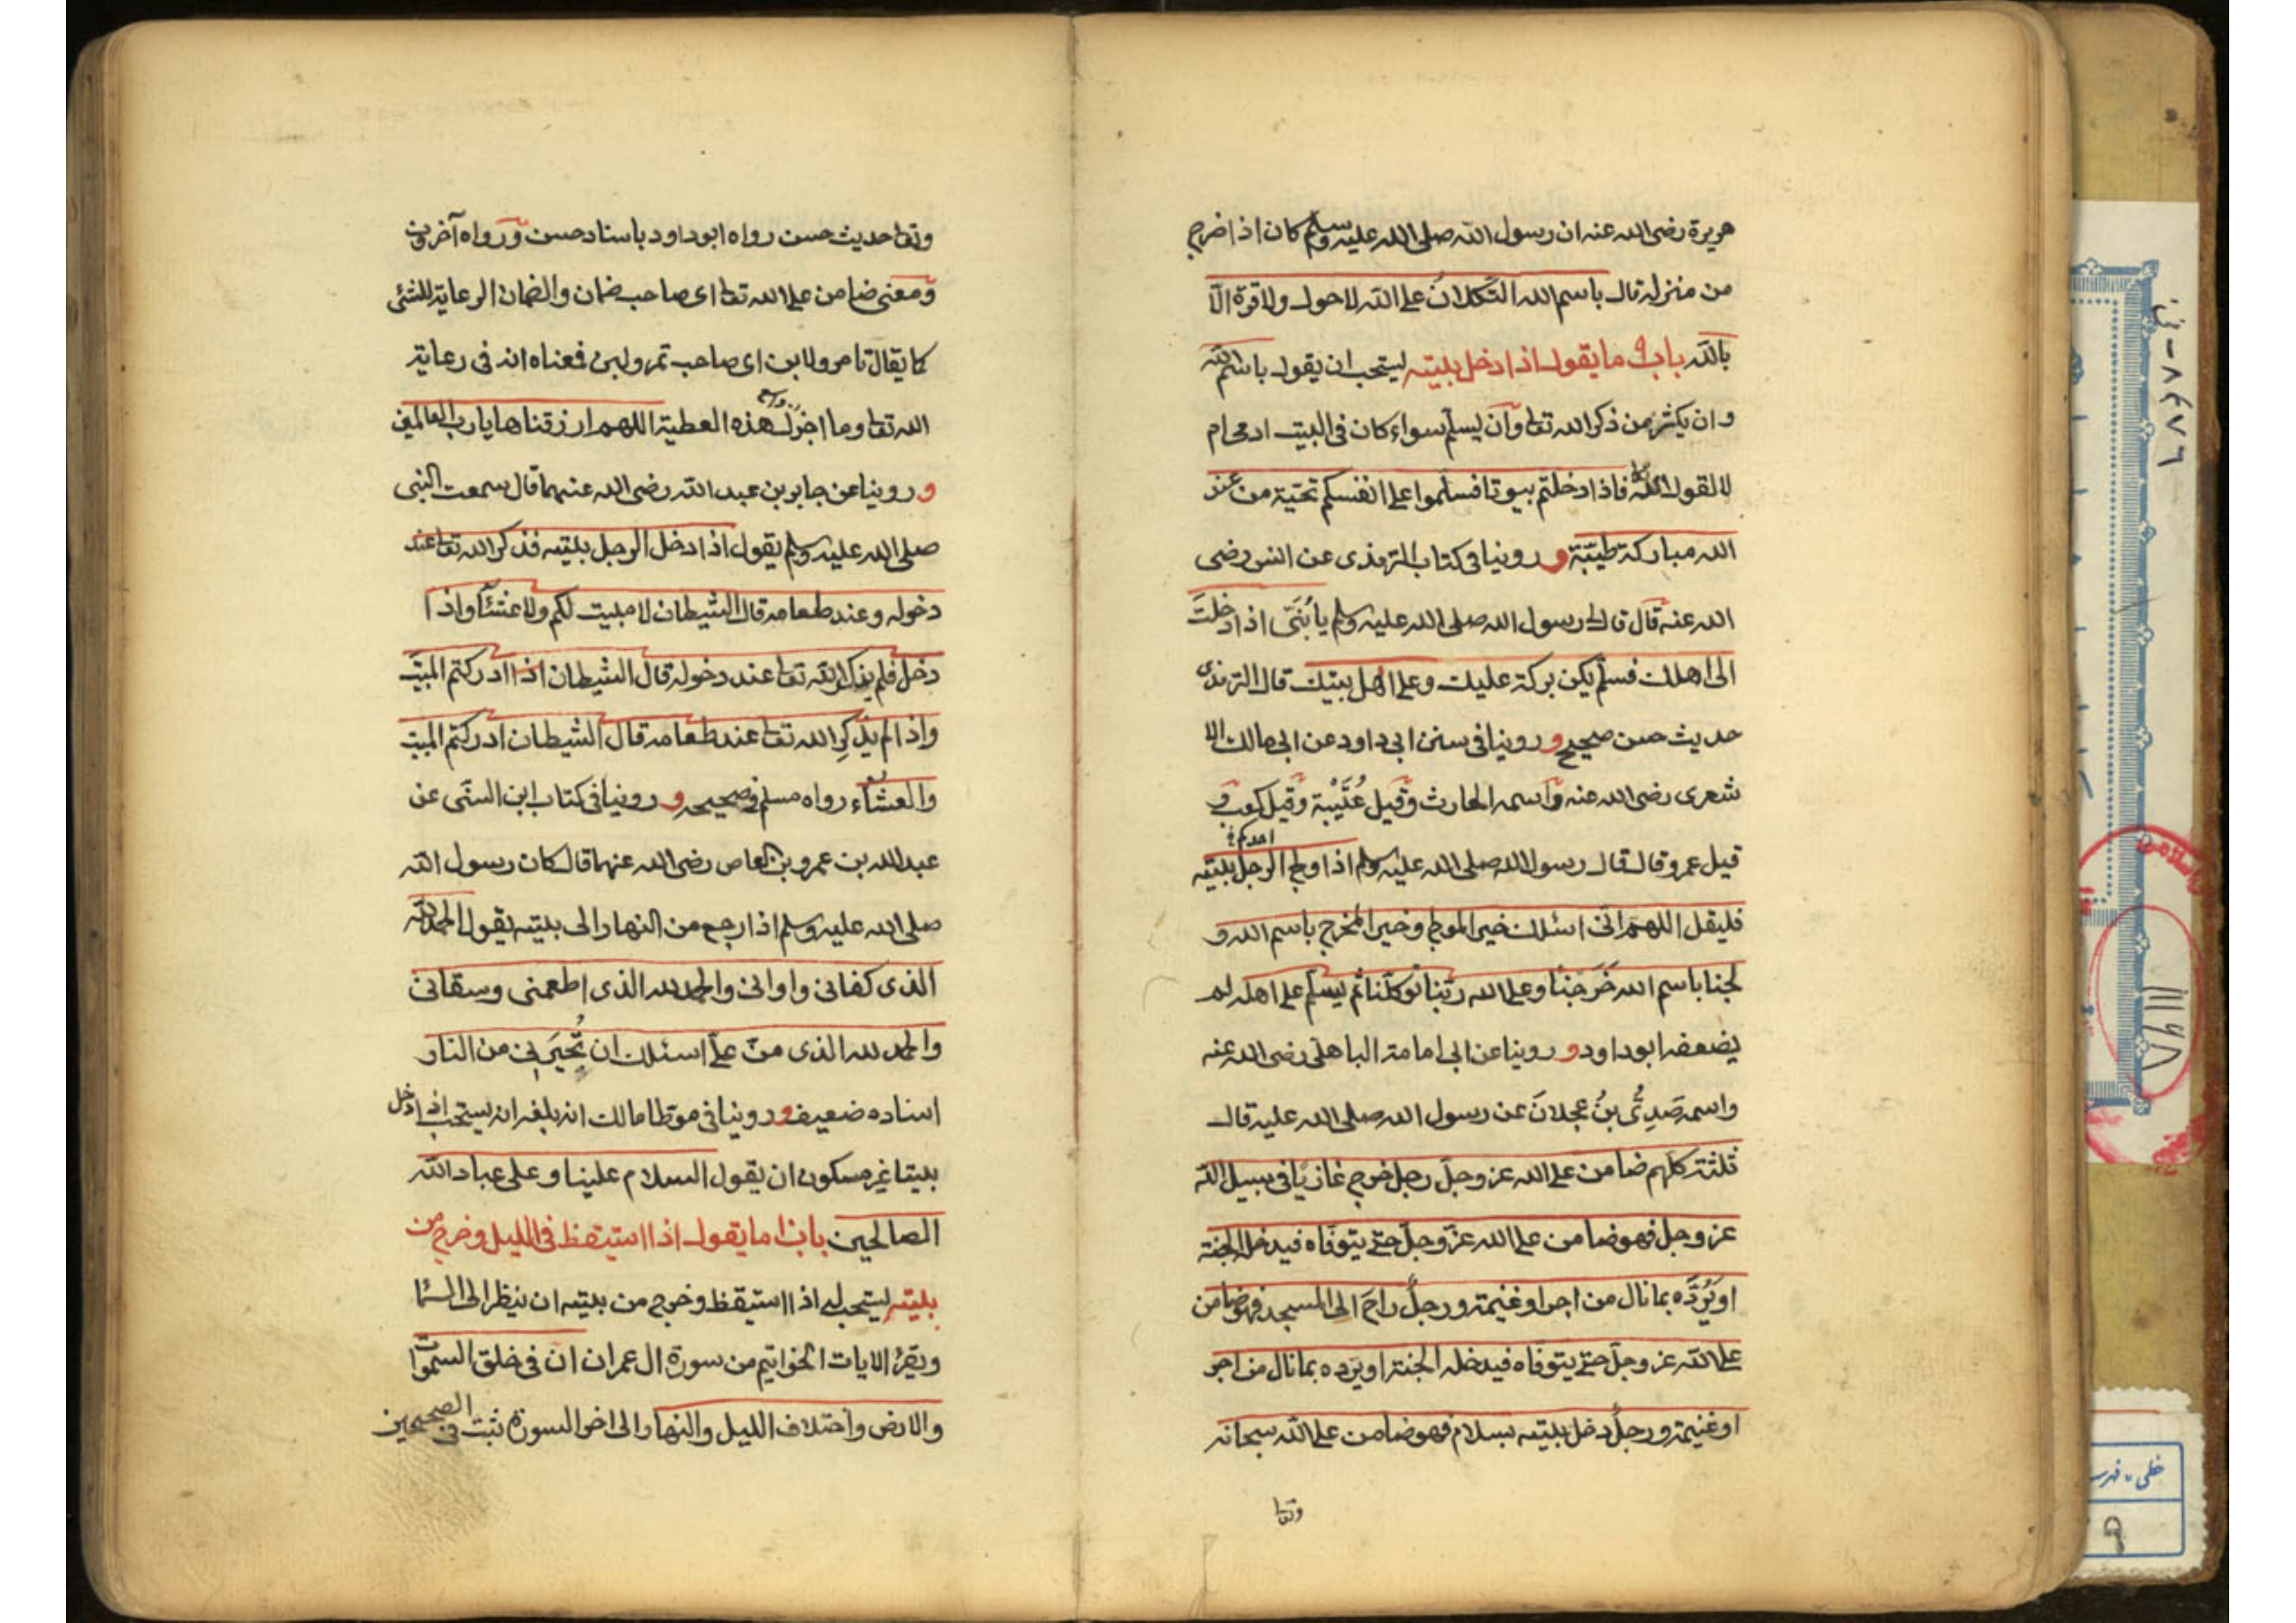 هريرة رضى الله عنه ان رسول الله صلى الله عليه وسلم كان اذا خرج
من منزله قال باسم الله التكلان على الله لا حول ولا قوة الا
بالله باب ما يقول اذا دخل بيته يستحب ان يقول باسم الله
وان يكثر من ذكر الله تعا وان يسلم سواء كان فى البيت ادمى ام
لا لقول الله تعا فاذا دخلتم بيوتا فسلموا على انفسكم تحية من عند
الله مباركة طيبة و روينا فى كتاب الترمذى عن انس رضى
الله عنه قال قال لى رسول الله صلى الله عليه وسلم يا بُنَىّ اذا دخلت
الى اهلك فسلم يكن بركة عليك وعلى اهل بيتك قال الترمذى
حديث حسن صحيح و روينا فى سنن ابى داود عن ابى مالك الا
شعرى رضى الله عنه واسمه الحارث وقيل عُبَيْد وقيل كعب و
احدكم
قيل عمرو قال قال رسول الله صلى الله عليه وسلم اذا ولج الرجل بيته
فليقل اللهم انى اسئلك خير المولج وخير المخرج باسم الله و
لجنا باسم الله خَرَجْنا وعلى الله ربنا توكلنا ثم يسلم على اهله لم
يضعفه ابوداود و روينا عن ابى امامة الباهلى رضى الله عنه
واسمه صَدىّ بنُ عجلانَ عن رسول الله صلى الله عليه قال
ثلثة كلهم ضامن على الله عز وجل رجل خرج غازيا فى سبيل الله
عز وجل فهو ضامن على الله عز وجل حتى يتوفاه فيدخل الجنة
او يَرُدَّه بما نال من اجر او غنيمة ورجلٌ راحَ الى المسجد فهو ضامن
على الله عز وجل حتى يتوفاه فيدخله الجنة او يرده بما نال من اجر
او غنيمة ورجلٌ دخل بيته بسلام فهو ضامن على الله سبحانه
وتعا
وتعا حديث حسن رواه ابوداود باسناد حسن و رواه آخرون
ومعنى ضامن على الله تعا اى صاحب ضمان والضمان الرعاية للشئ
كما يقال تامر ولابن اى صاحب تمر ولبن فمعناه انه فى رعاية
الله تعا وما اجزل هذه العطية اللهم ارزقناها يا رب العالمين
و روينا عن جابر بن عبد الله رضى الله عنهما قال سمعت النبى
صلى الله عليه وسلم يقول اذا دخل الرجل بيته فذكر الله تعا عند
دخوله وعند طعامه قال الشيطان لا مبيت لكم ولا عشاء واذا
دخل فلم يذكر الله تعا عند دخوله قال الشيطان ادركتم المبيت
واذا لم يذكرِ الله تعا عند طعامه قال الشيطان ادركتم المبيت
والعشاء رواه مسلم فى صحيحه و روينا فى كتاب ابن السنى عن
عبد الله بن عمرو بن العاص رضى الله عنهما قال كان رسول الله
صلى الله عليه وسلم اذا رجع من النهار الى بيته يقول الحمد لله
الذى كفانى واوانى والحمد لله الذى اطعمنى وسقانى
والحمد لله الذى منّ علىّ اسئلك ان تُجيرَنى من النار
اسناده ضعيف و روينا فى موطا مالك انه بلغه انه يستحب اذا دخل
بيتا غير مسكون ان يقول السلام علينا وعلى عباد الله
الصالحين باب ما يقول اذا استيقظ فى الليل وخرج من
بيته يستحب له اذا استيقظ وخرج من بيته ان ينظر الى السماء
ويقرئ الايات الخواتيم من سورة ال عمران ان فى خلق السموات
والارض واختلاف الليل والنهار الى اخر السورة ثبت فى الصحيحين
٨٤٧٦
خطى - فهرست
٩